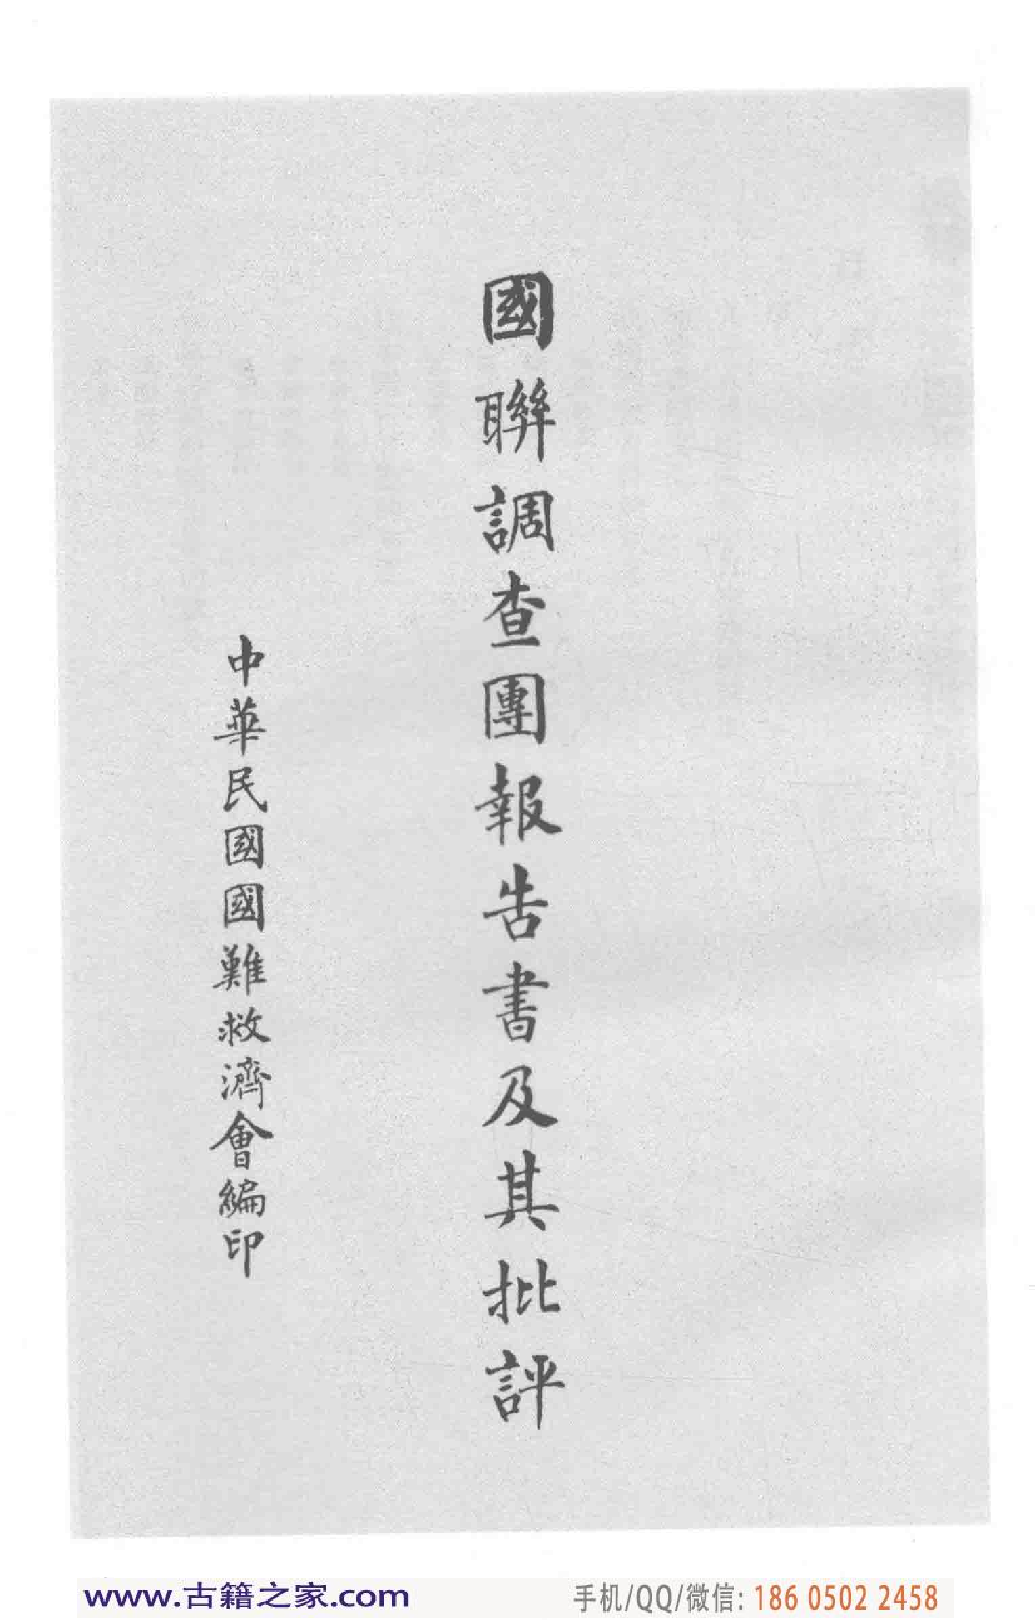 國聯調查團報告書及其批評
中華民國國難救濟會編印
www.古籍之家.com
手机/QQ/微信: 186 0502 2458